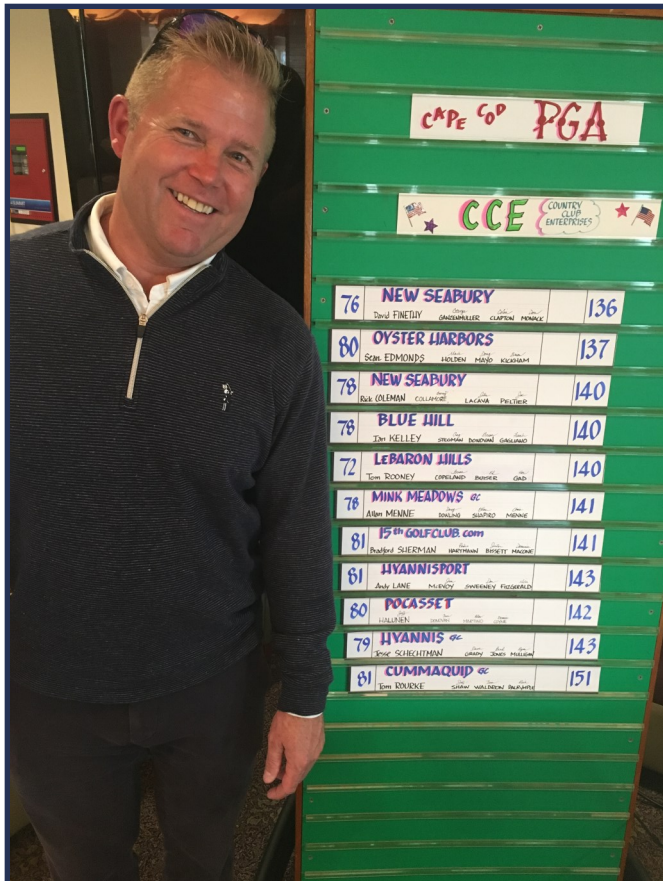 CAPE COD PGA
CCE COUNTRY CLUB ENTERPRISES
76 NEW SEABURY 136
David FINETHY GANZENMULLER CLAFTON MONACK
80 OYSTER HARBORS 137
Sean EDMONDS HOLDEN MAYO KICKHAM
78 NEW SEABURY 140
Rick COLEMAN COLLAMORE LACAVA PELTIER
78 BLUE HILL 140
Ian KELLEY STEGMAN DONOVAN GAGLIANO
72 LeBARON HILLS 140
Tom ROONEY COPELAND BUIJSER GAD
78 MINK MEADOWS GC 141
Allan MENNE DOWLING SHAPIRO MENNE
81 15th GOLFCLUB.com 141
Bradford SHERMAN HARTMANN BISSETT MACONE
81 HYANNISPORT 143
Andy LANE McEVOY SWEENEY FITZGERALD
80 POCASSET 142
HALUNEN
79 HYANNIS GC 143
Jesse SCHECHTMAN GRADY JONES MULLIGAN
81 CUMMAQUID GC 151
Tom ROURKE SHAW WALDRON